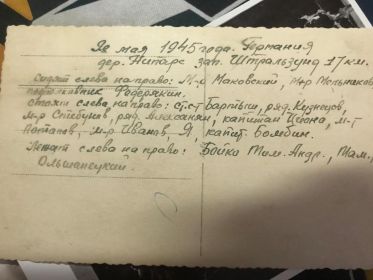 мая 1945 года. Германия
дер. Нипарс зап. Штральзунд 17 км.
Сидят слева на право: М-р Маковский, М-р Мельников
подполковник Федоряхин.
Стоят слева на право: ст. с-т Бартыш, ряд. Кузнецов,
м-р Стебунов, ряд. Алексанян, капитан Циона, м-р
Постапов, м-р Иванов, Я, капит. Бомбин.
Лежат слева на право: Бойко Тим. Андр., Мам.,
Ольшанецкий.